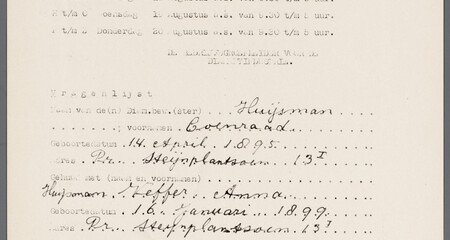 N t/m O Woensdag 19 Augustus a.s. van 6.30 t/m 8 uur.
t/m Z Donderdag 20 Augustus a.s. van 6.30 t/m 8 uur.
DE
Vragenlijst
Naam van de(n) Diam.bew.(ster) Huijsman
voornamen Coenraad
Geboortedatum 14 April 1895
Adres Pr. Steijnplantsoen 13 I
Gehuwd met (naam en voornamen)
Huijsman Keffer Anna
Geboortedatum 16 Januari 1899
Adres Pr. Steijnplantsoen 13 I